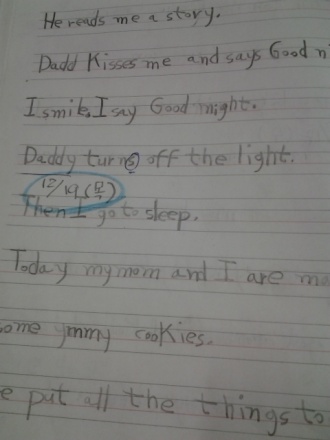 He reads me a story.
Dadd Kisses me and says Good n
I smile, I say Good night.
Daddy turns off the light.
12/19(목)
Then I go to sleep.
Today my mom and I are ma
ome ymmy cookies.
e put all the things to